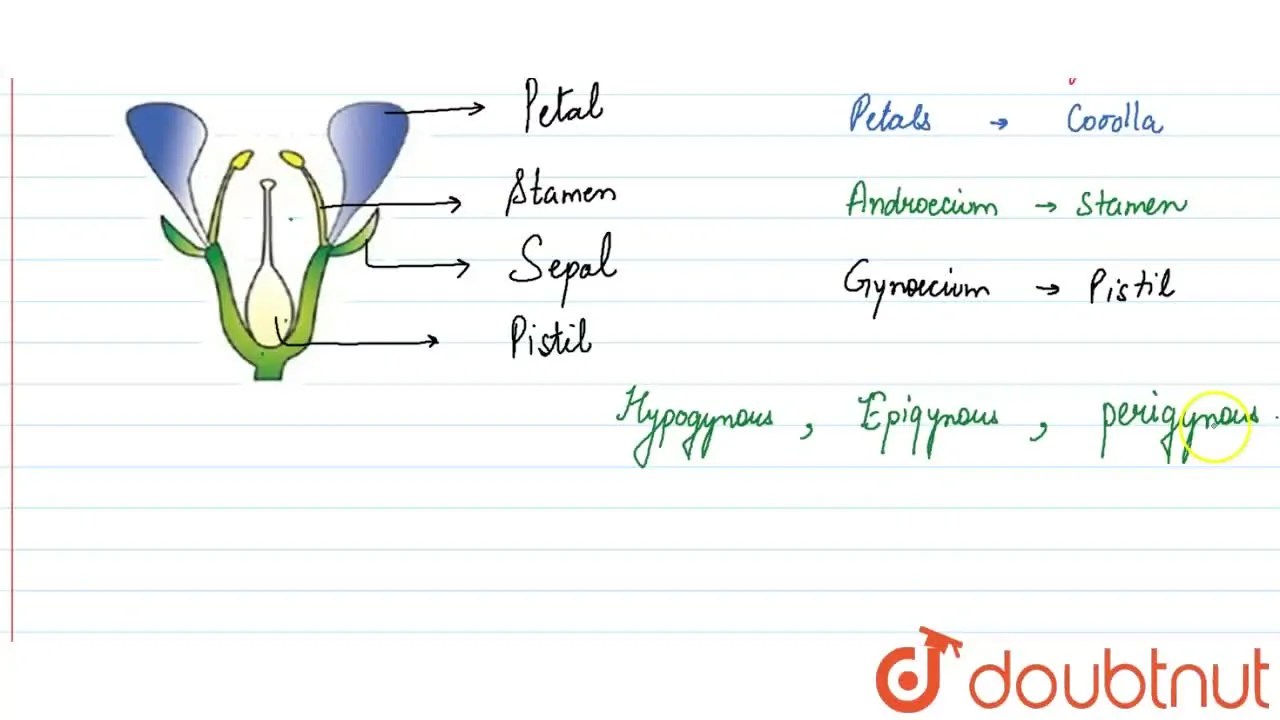 Petal
Stamen
Sepal
Pistil
Petals → Corolla
Androecium → Stamen
Gynoecium → Pistil
Hypogynous , Epigynous , perigynous .
doubtnut